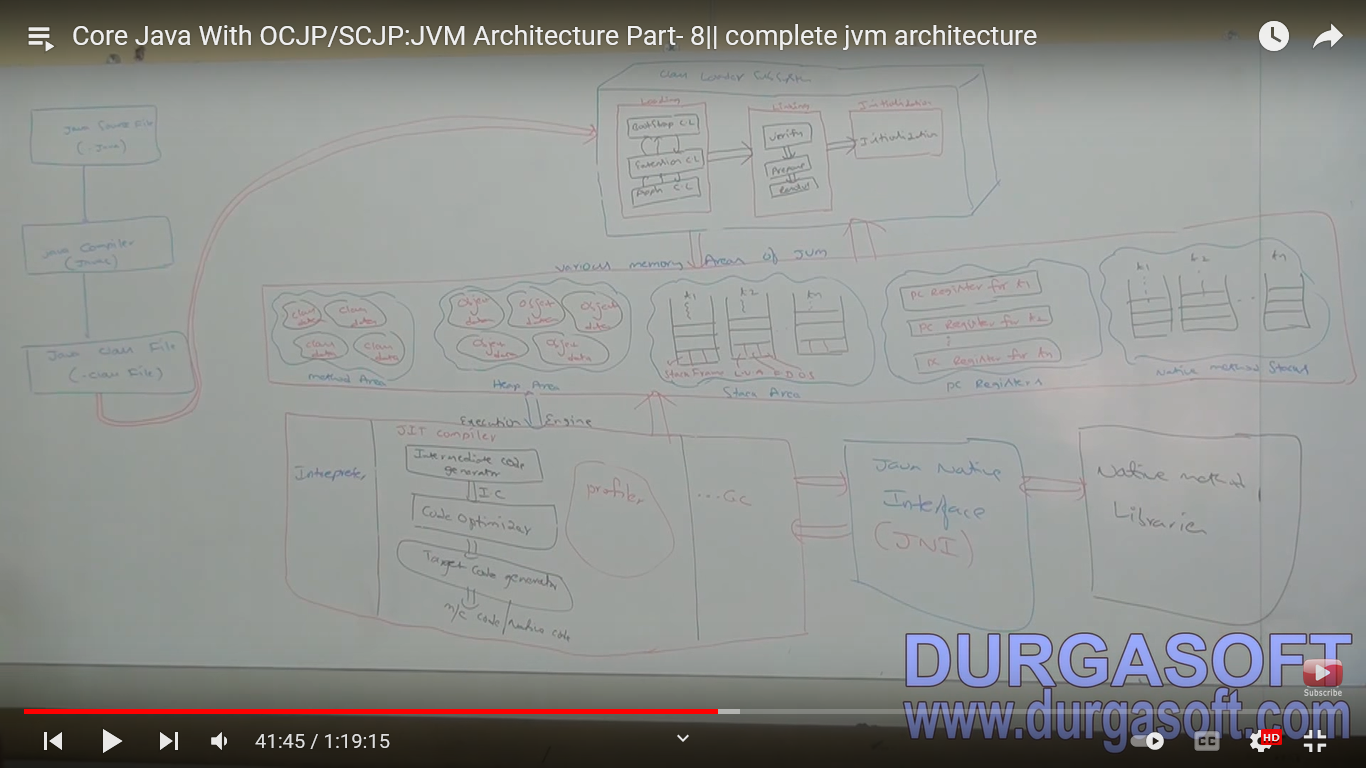 Core Java With OCJP/SCJP:JVM Architecture Part- 8|| complete jvm architecture
Class Loader Subsystem
Loading
Linking
Initialization
Java Source File
(.Java)
BootStrap C.L
Extension C.L
Appln C.L
Verify
Prepare
Initialization
Java Compiler
(Javac)
Various memory Areas of JVM
Java Class File
(.class File)
class data
class data
class data
class data
Method Area
Object data
Object data
Object data
Object data
Object data
Heap Area
t1
t2
tn
Stack Frame
L V A
O S
Stack Area
PC Register for t1
PC Register for t2
PC Register for tn
PC Registers
t1
t2
tn
Native method Stacks
Execution Engine
Intrepreter
JIT compiler
Intermediate code
generator
I C
Code Optimizer
Target Code generator
m/c code/Native code
profiler
...GC
Java Native
Interface
(JNI)
Native method
Libraries
DURGASOFT
www.durgasoft.com
Subscribe
41:45 / 1:19:15
CC
HD